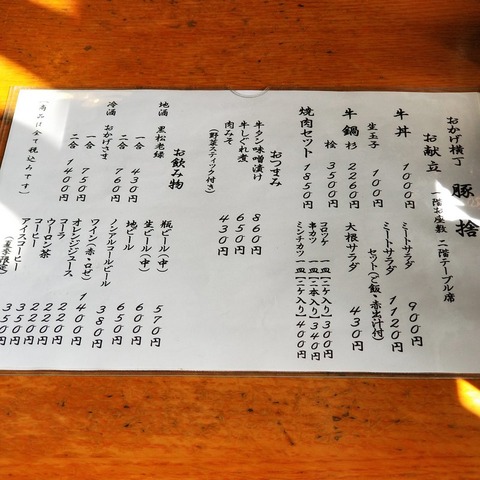 おかげ横丁 豚捨
お献立 一階お座敷 二階テーブル席
牛丼 1000円
生玉子 100円
牛鍋 杉 2260円
桧 3500円
焼肉セット 1850円
ミートサラダ 900円
ミートサラダ 1120円
セット(ご飯・赤出汁付)
大根サラダ 430円
コロッケ 一皿【二ケ入り】300円
串カツ 一皿【二本入り】340円
ミンチカツ 一皿【二ケ入り】400円
おつまみ
牛タン味噌漬け 860円
牛しぐれ煮 650円
肉みそ 430円
(野菜スティック付き)
お飲み物
地酒 黒松老緑 一合 430円
二合 760円
冷酒 おかげさま 一合 750円
二合 1400円
瓶ビール(中) 570円
生ビール(中) 600円
地ビール 650円
ノンアルコールビール 380円
ワイン(赤・ロゼ) 1400円
オレンジジュース 220円
コーラ 220円
ウーロン茶 220円
コーヒー 350円
アイスコーヒー 350円
(夏季限定)
(商品は全て税込みです。)